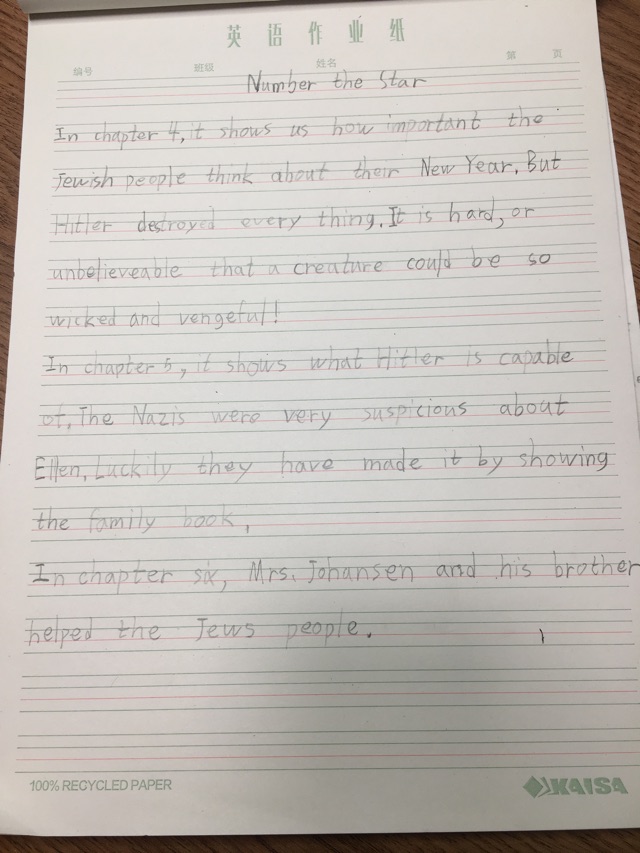 英语作业纸
编号 班级 姓名 第 页
Number the Star
In chapter 4, it shows us how important the
Jewish people think about their New Year. But
Hitler destroyed every thing. It is hard, or
unbelieveable that a creature could be so
wicked and vengeful!
In chapter 5, it shows what Hitler is capable
of. The Nazis were very suspicious about
Ellen. Luckily they have made it by showing
the family book.
In chapter six, Mrs. Johansen and his brother
helped the Jews people.
100% RECYCLED PAPER KAISA